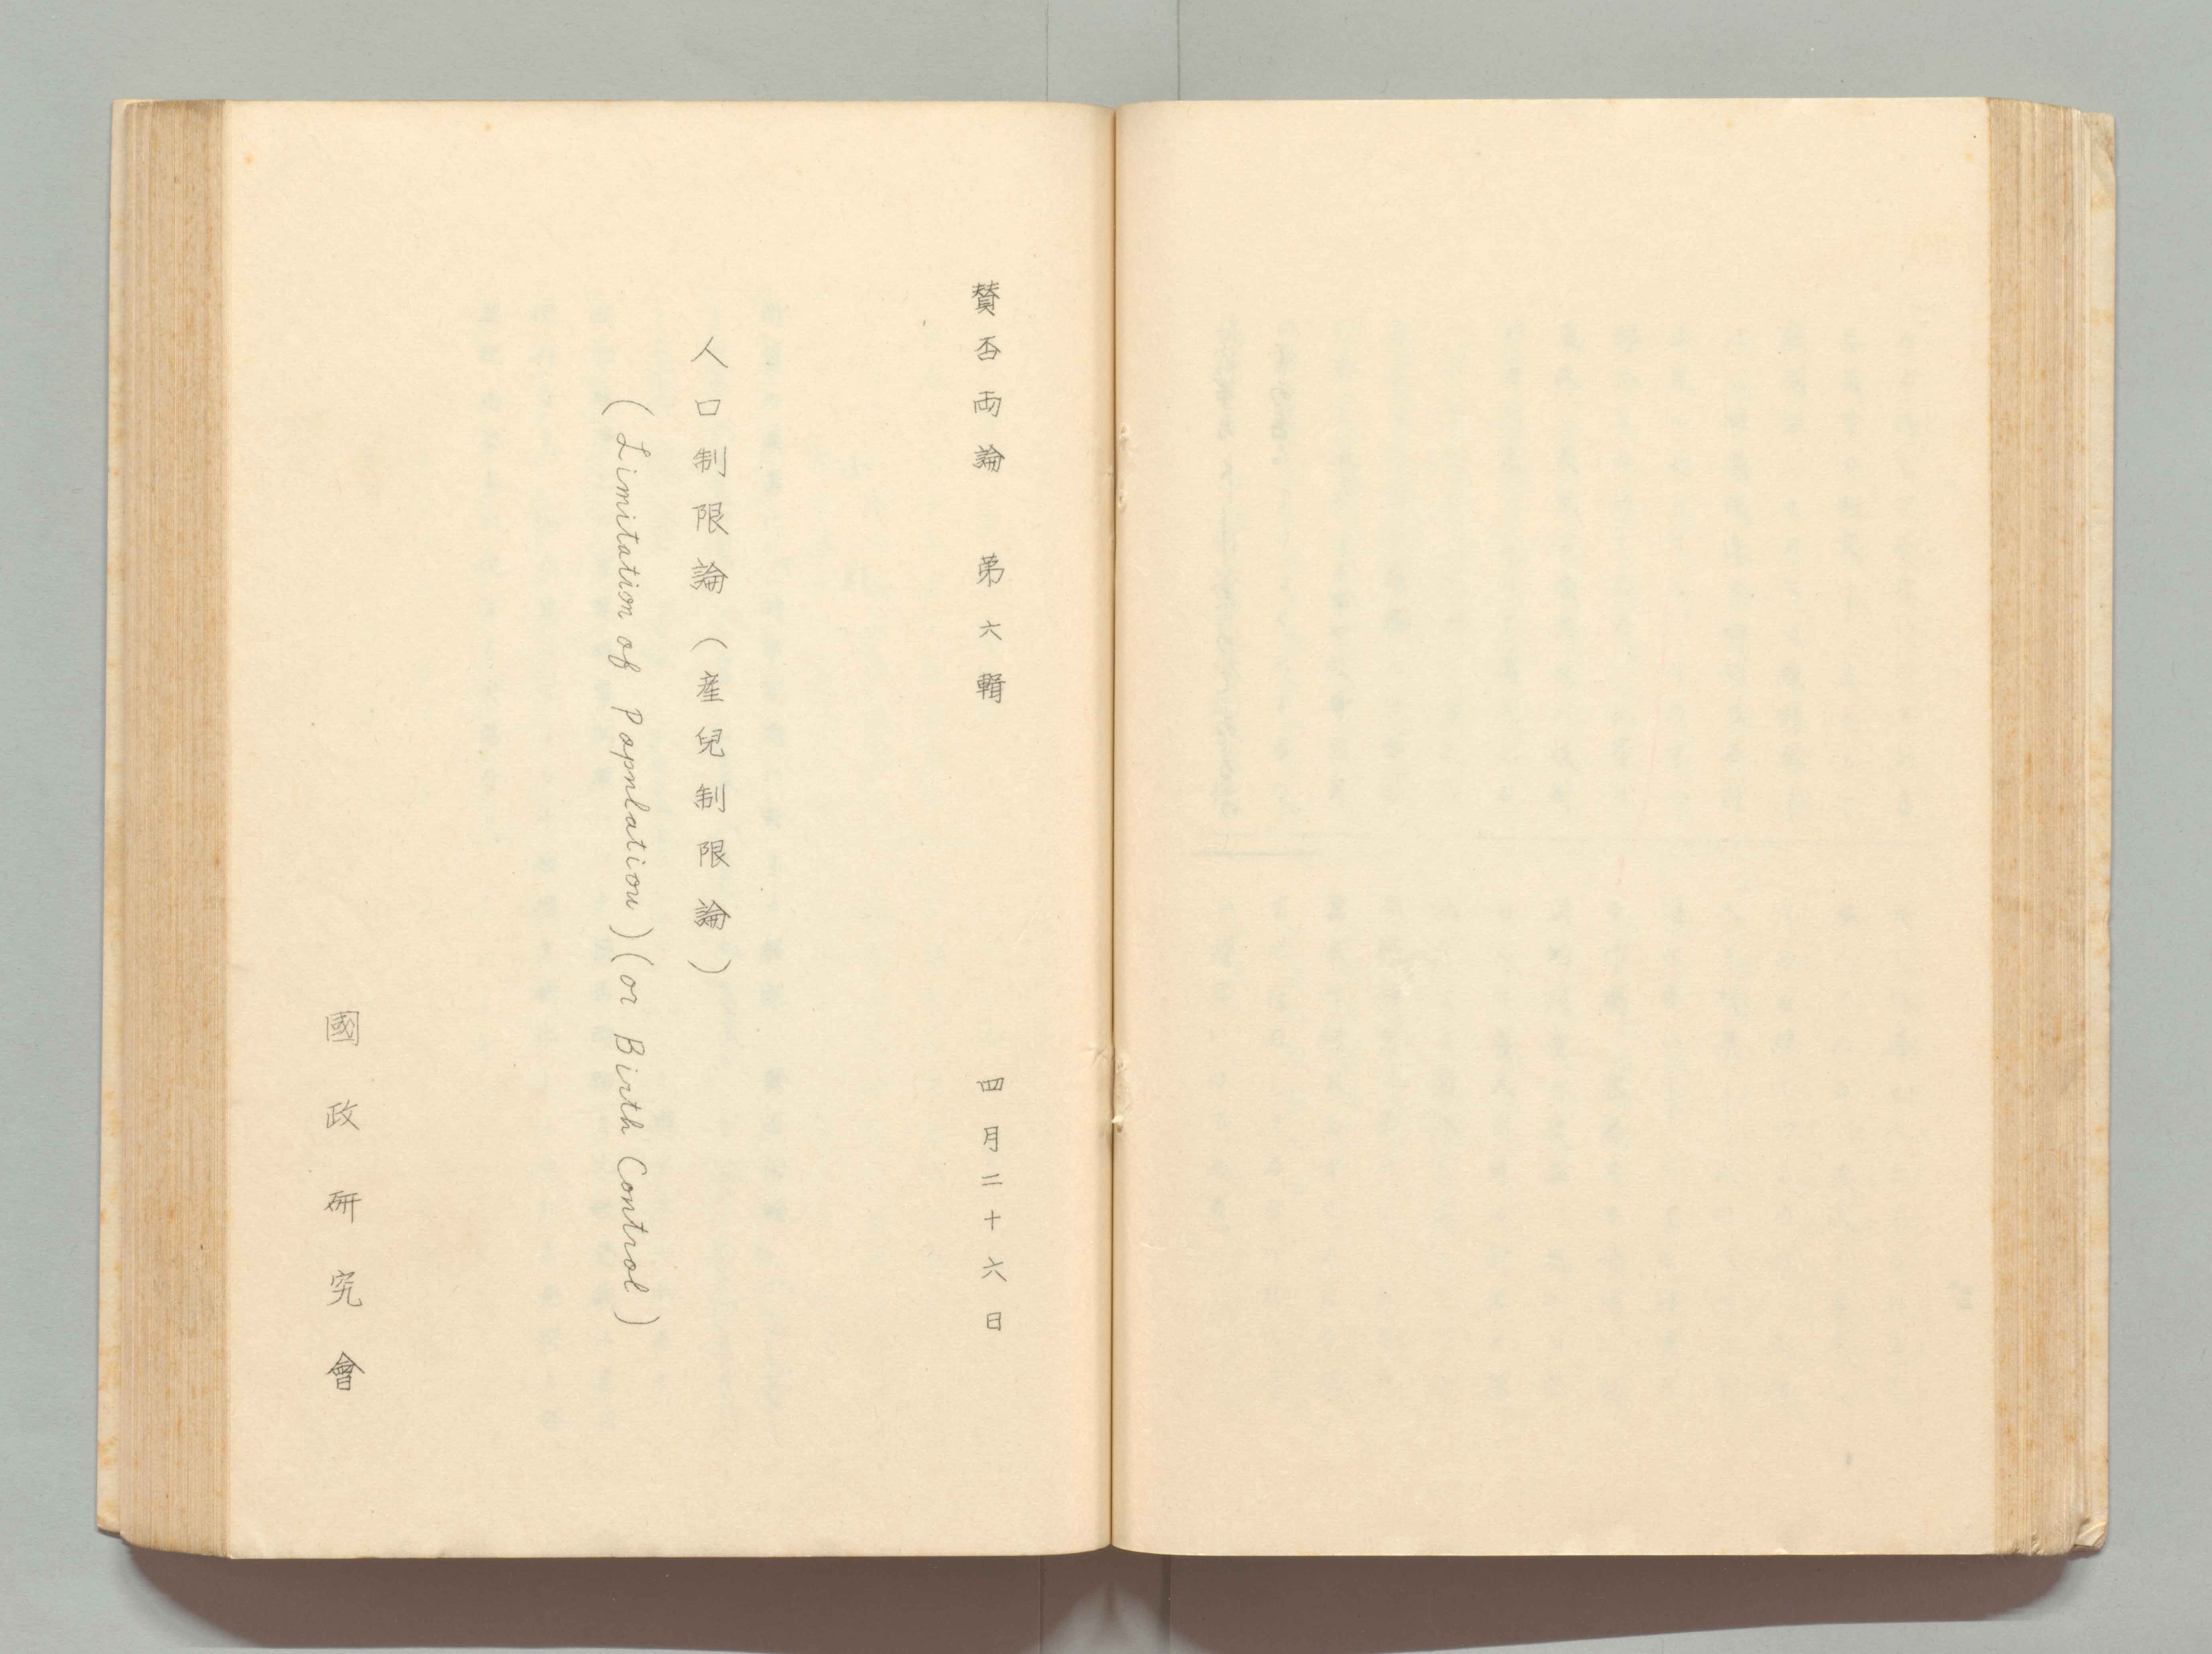 賛否両論　第六輯　四月二十六日
人口制限論（産兒制限論）
(Limitation of Popnlation) (or Birth Control)
國政研究會